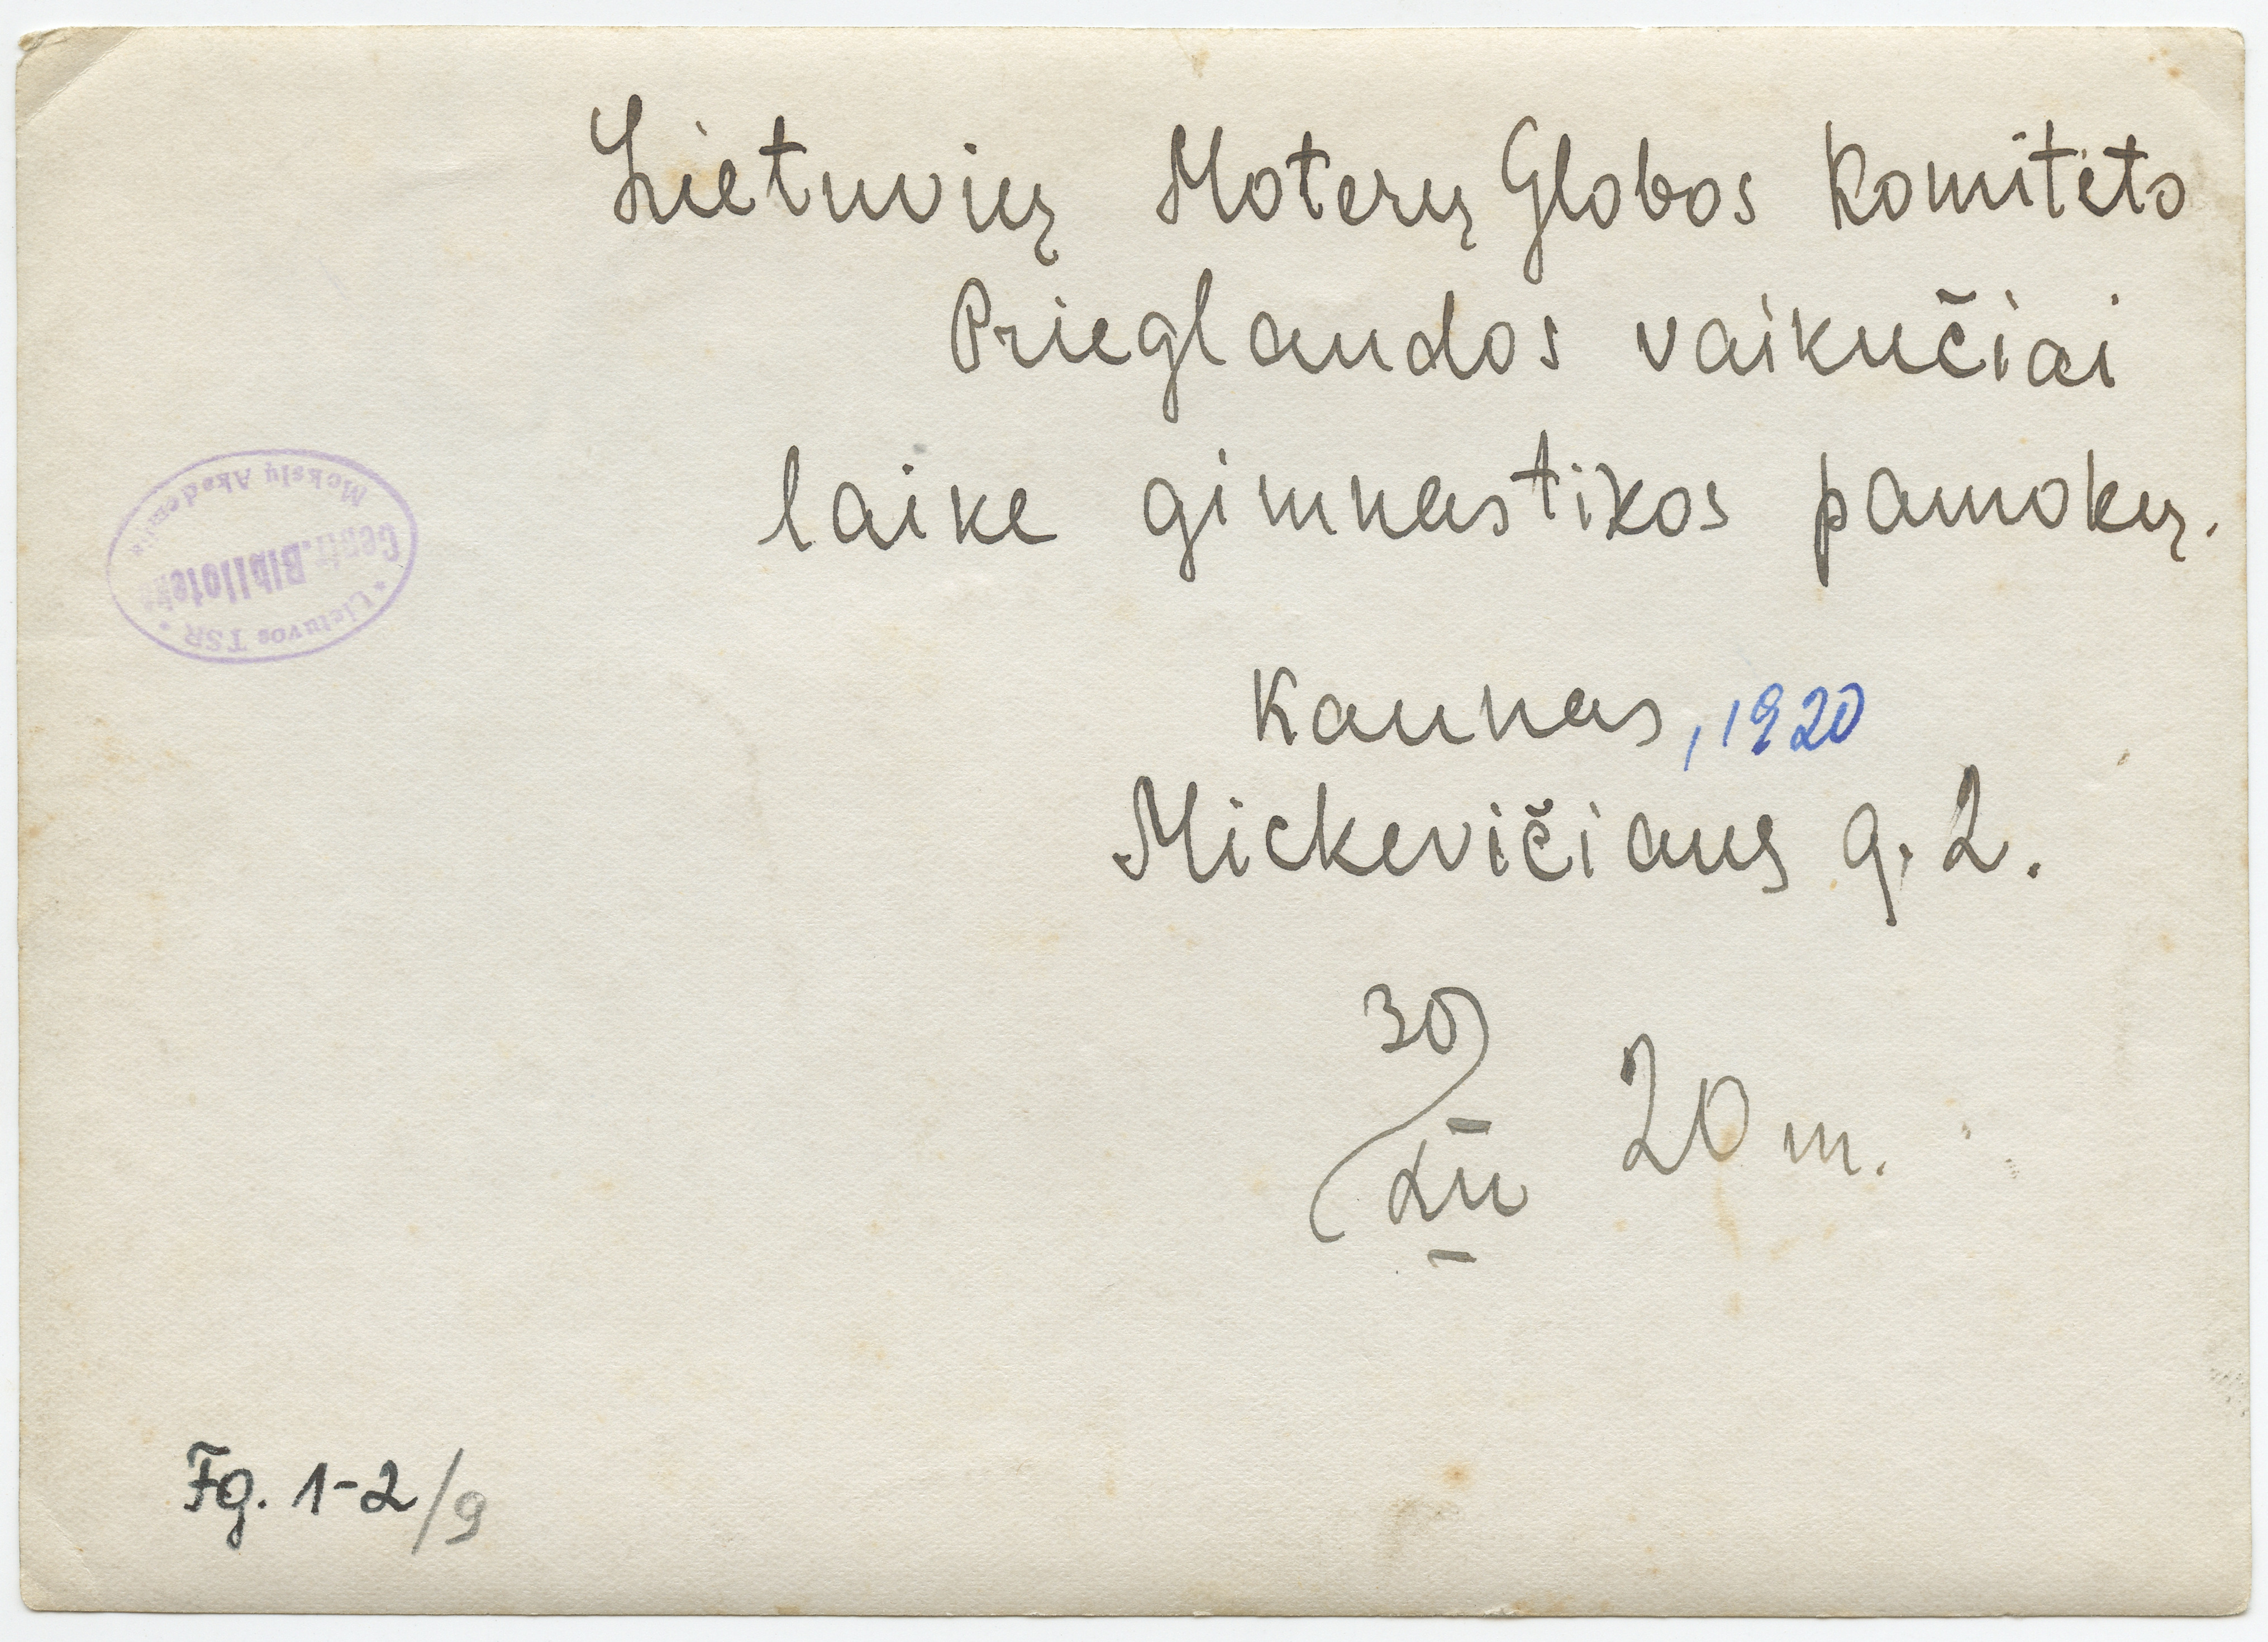 Lietuvių Moterų Globos Komiteto
Prieglaudos vaikučiai
laike gimnastikos pamokų.
Kaunas, 1920
Mickevičiaus g. 2.
30/XII 20 m.
* Lietuvos TSR *
Centr. Biblioteka
Mokslų Akademija
Fg. 1-2/9